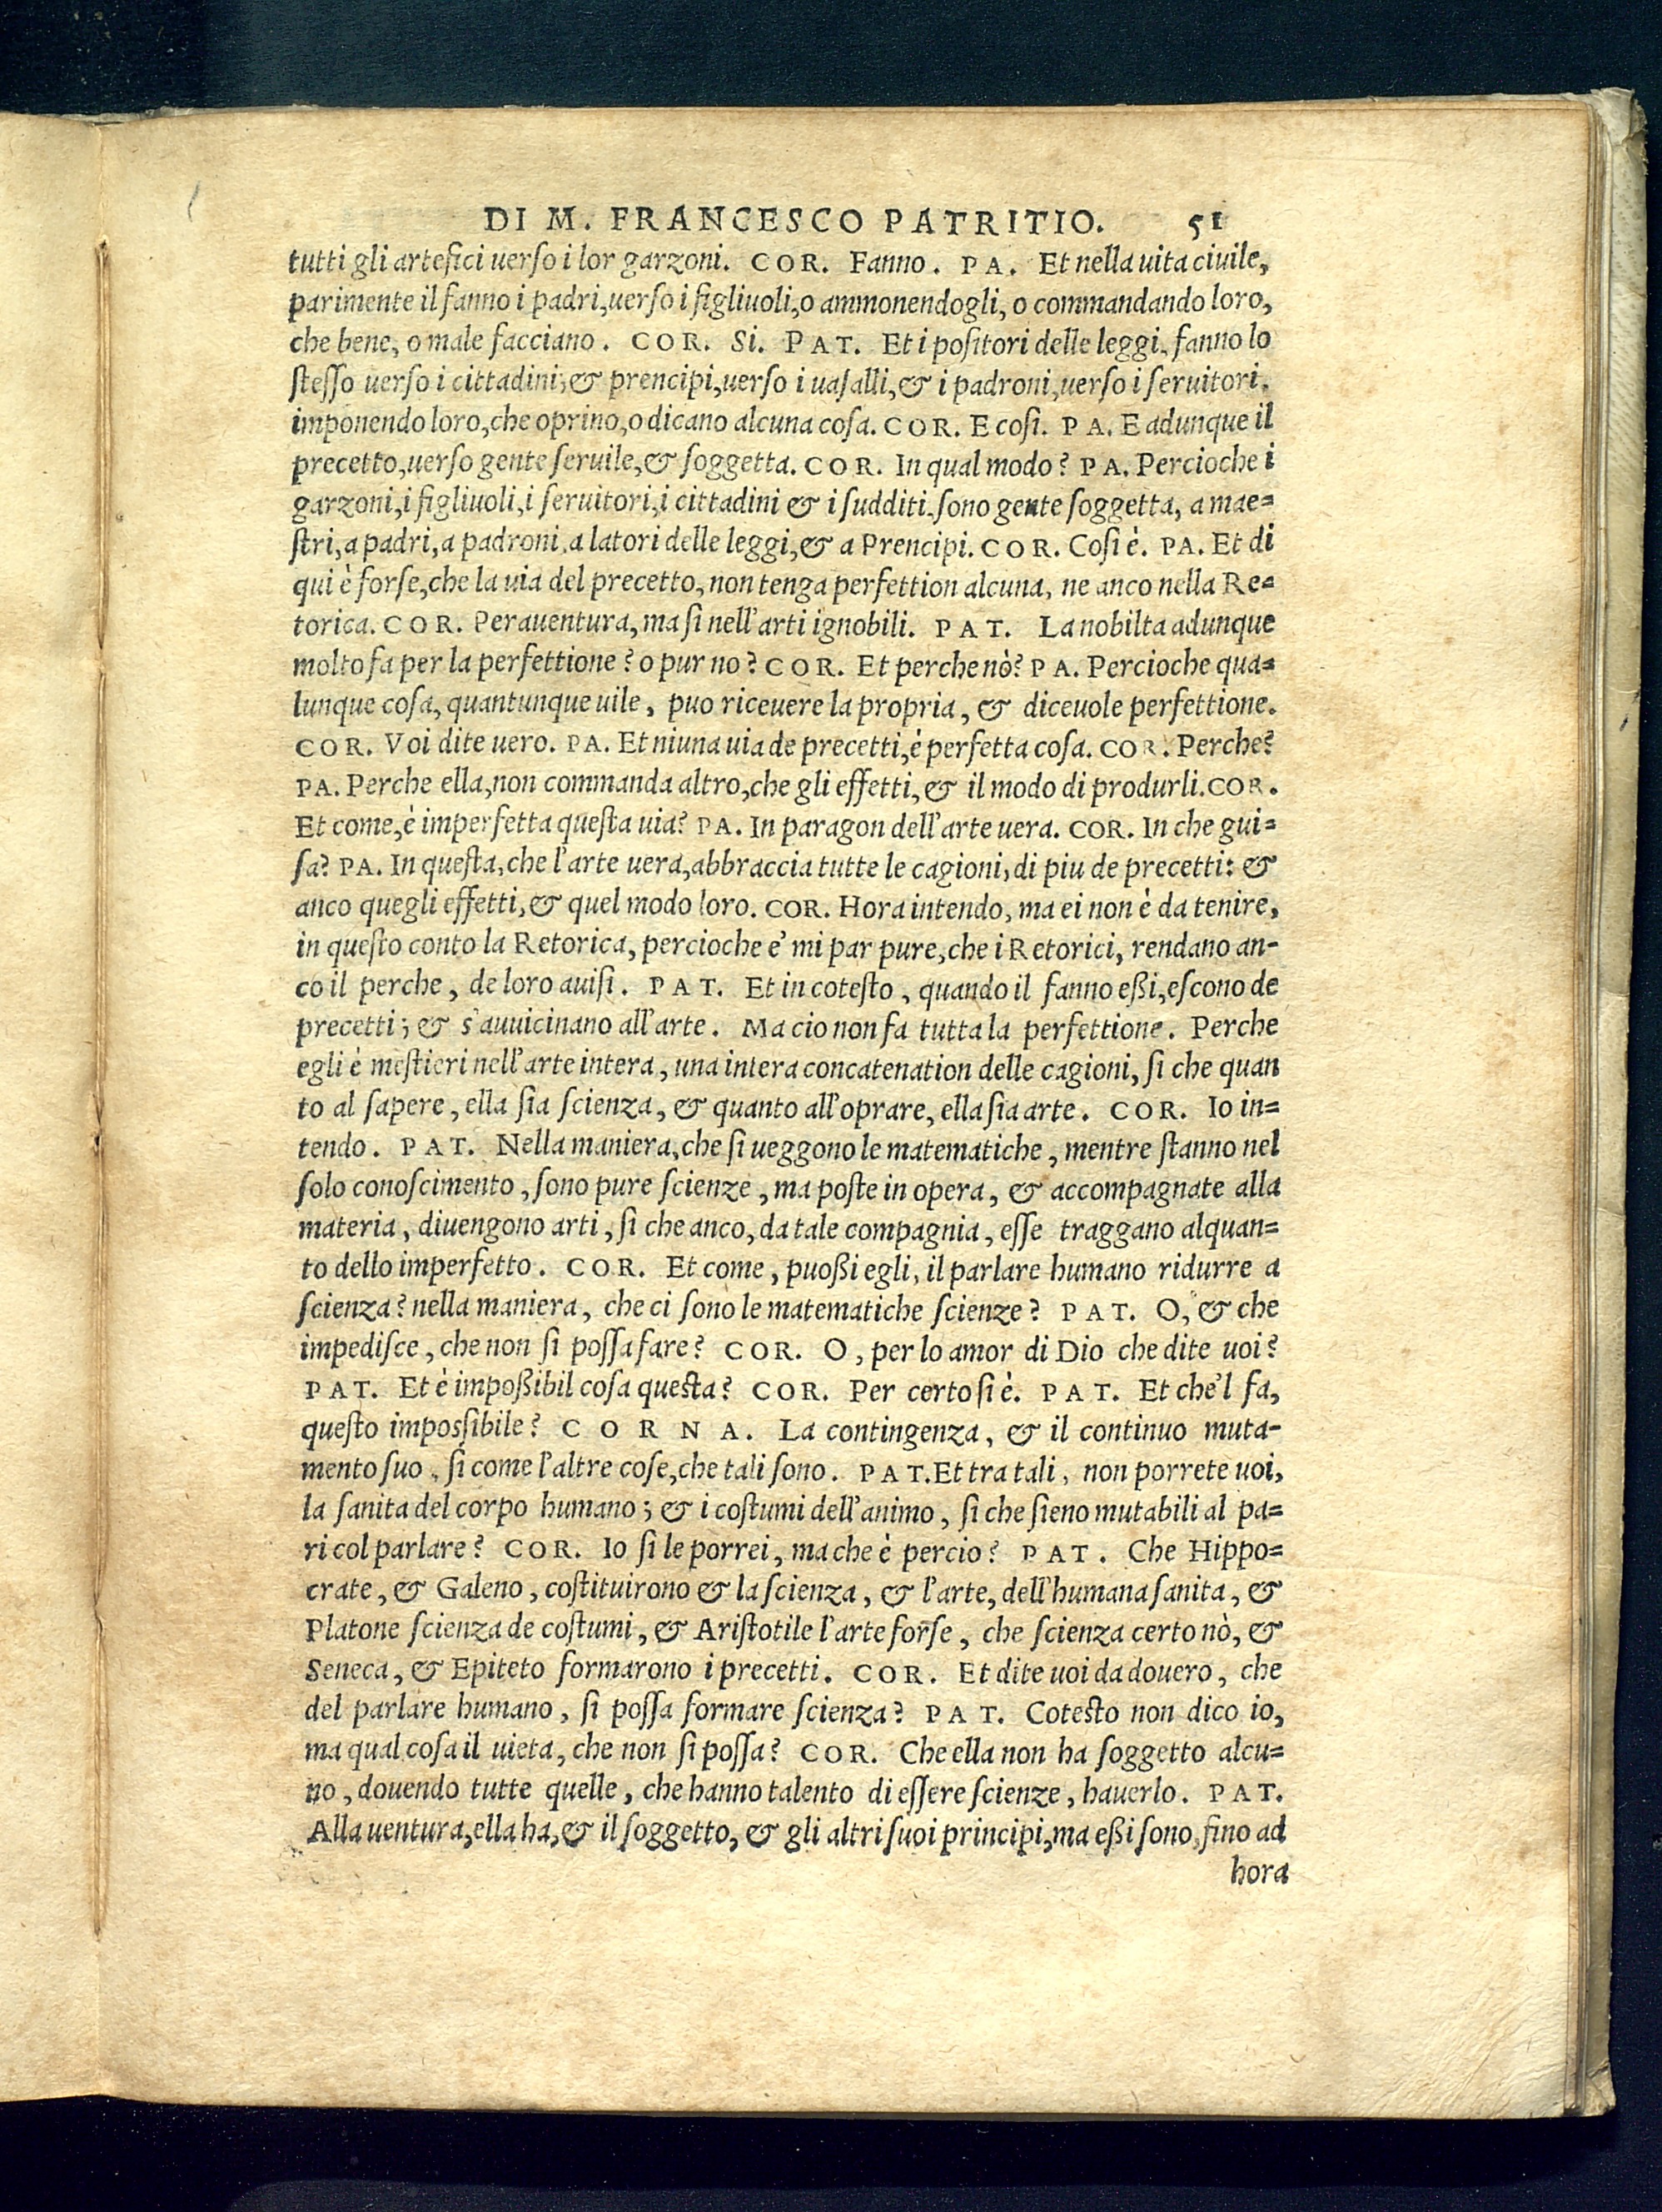 DI M. FRANCESCO PATRITIO. 51
tutti gli artefici uerſo i lor garzoni. COR. Fanno. PA. Et nella uita ciuile,
parimente il fanno i padri, uerſo i figliuoli, o ammonendogli, o commandando loro,
che bene, o male facciano. COR. Si. PAT. Et i poſitori delle leggi, fanno lo
ſteſſo uerſo i cittadini; & prencipi, uerſo i uaſalli, & i padroni, uerſo i ſeruitori,
imponendo loro, che oprino, o dicano alcuna coſa. COR. E coſi. PA. E adunque il
precetto, uerſo gente ſeruile, & ſoggetta. COR. In qual modo? PA. Percioche i
garzoni, i figliuoli, i ſeruitori, i cittadini & i ſudditi, ſono gente ſoggetta, a mae=
ſtri, a padri, a padroni, a latori delle leggi, & a Prencipi. COR. Coſi è. PA. Et di
qui è forſe, che la uia del precetto, non tenga perfettion alcuna, ne anco nella Re=
torica. COR. Perauentura, ma ſi nell'arti ignobili. PAT. La nobilta adunque
molto fa per la perfettione? o pur no? COR. Et perche nò? PA. Percioche qua=
lunque coſa, quantunque uile, puo riceuere la propria, & diceuole perfettione.
COR. Voi dite uero. PA. Et niuna uia de precetti, è perfetta coſa. COR. Perche?
PA. Perche ella, non commanda altro, che gli effetti, & il modo di produrli. COR.
Et come, è imperfetta queſta uia? PA. In paragon dell'arte uera. COR. In che gui=
ſa? PA. In queſta, che l'arte uera, abbraccia tutte le cagioni, di piu de precetti: &
anco quegli effetti, & quel modo loro. COR. Hora intendo, ma ei non è da tenire,
in queſto conto la Retorica, percioche e' mi par pure, che i Retorici, rendano an-
co il perche, de loro auiſi. PAT. Et in coteſto, quando il fanno eßi, eſcono de
precetti; & s'auuicinano all'arte. Ma cio non fa tutta la perfettione. Perche
egli è meſtieri nell'arte intera, una intera concatenation delle cagioni, ſi che quan
to al ſapere, ella ſia ſcienza, & quanto all'oprare, ella ſia arte. COR. Io in=
tendo. PAT. Nella maniera, che ſi ueggono le matematiche, mentre ſtanno nel
ſolo conoſcimento, ſono pure ſcienze, ma poſte in opera, & accompagnate alla
materia, diuengono arti, ſi che anco, da tale compagnia, eſſe traggano alquan=
to dello imperfetto. COR. Et come, puoßi egli, il parlare humano ridurre a
ſcienza? nella maniera, che ci ſono le matematiche ſcienze? PAT. O, & che
impediſce, che non ſi poſſa fare? COR. O, per lo amor di Dio che dite uoi?
PAT. Et è impoßibil coſa queſta? COR. Per certo ſi è. PAT. Et che'l fa,
queſto impoſſibile? CORNA. La contingenza, & il continuo muta-
mento ſuo, ſi come l'altre coſe, che tali ſono. PAT. Et tra tali, non porrete uoi,
la ſanita del corpo humano; & i coſtumi dell'animo, ſi che ſieno mutabili al pa=
ri col parlare? COR. Io ſi le porrei, ma che è percio? PAT. Che Hippo=
crate, & Galeno, coſtituirono & la ſcienza, & l'arte, dell'humana ſanita, &
Platone ſcienza de coſtumi, & Ariſtotile l'arte forſe, che ſcienza certo nò, &
Seneca, & Epiteto formarono i precetti. COR. Et dite uoi da douero, che
del parlare humano, ſi poſſa formare ſcienza? PAT. Coteſto non dico io,
ma qual coſa il uieta, che non ſi poſſa? COR. Che ella non ha ſoggetto alcu=
no, douendo tutte quelle, che hanno talento di eſſere ſcienze, hauerlo. PAT.
Alla uentura, ella ha, & il ſoggetto, & gli altri ſuoi principi, ma eßi ſono, fino ad
hora